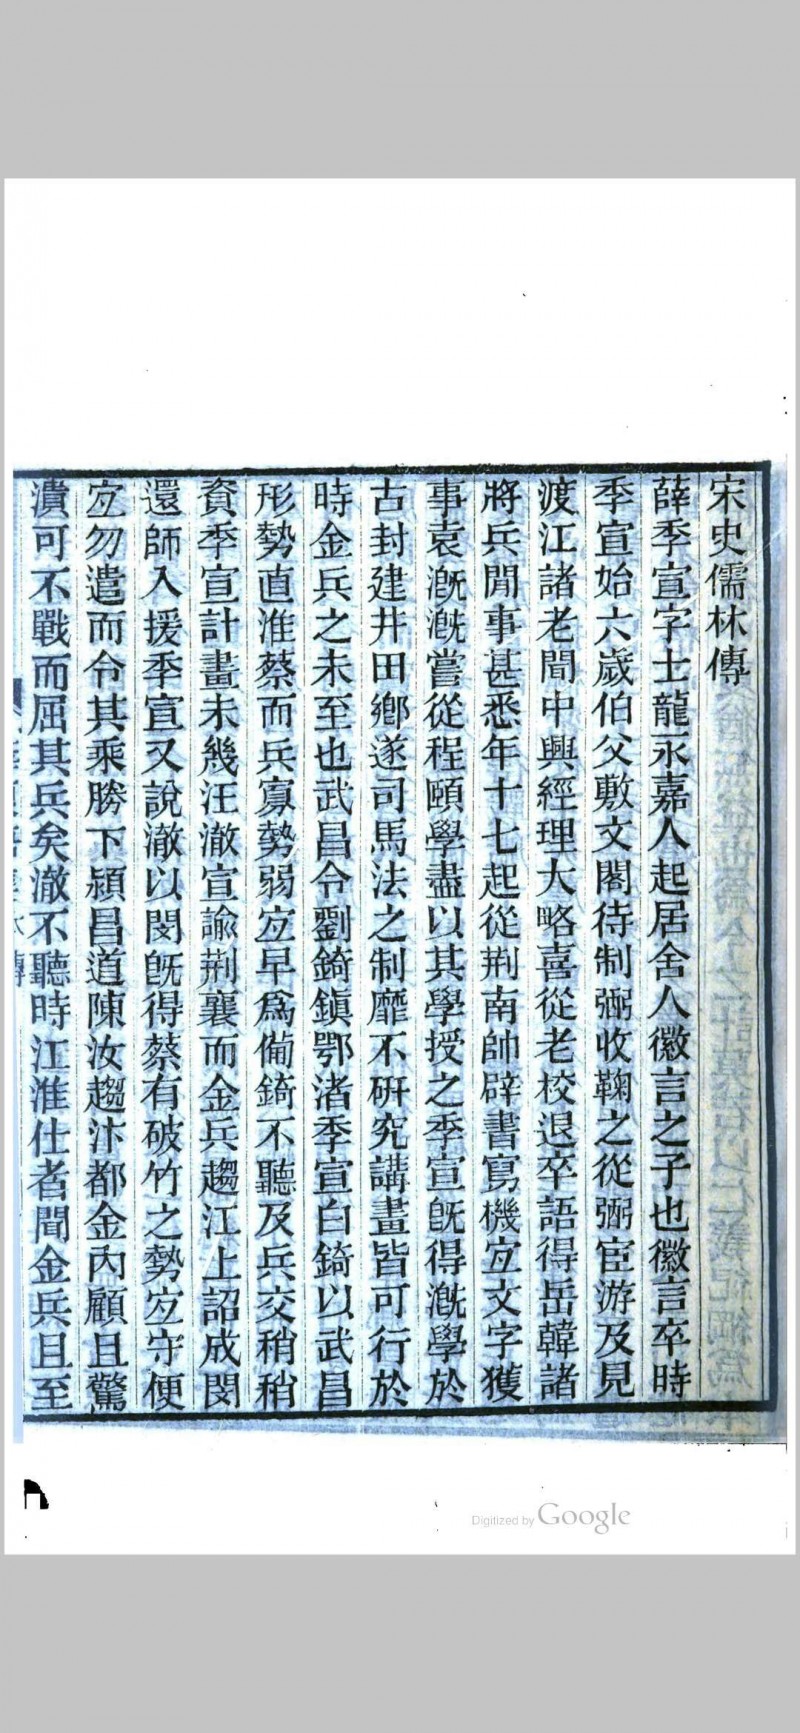 宋史儒林傳
薛季宣字士龍永嘉人起居舍人徽言之子也徽言卒時
季宣始六歲伯父敷文閣待制弼收鞠之從弼宦游及見
渡江諸老聞中興經理大略喜從老校退卒語得岳韓諸
將兵閒事甚悉年十七起從荆南帥辟書寫機宜文字獲
事袁溉溉嘗從程頤學盡以其學授之季宣旣得溉學於
古封建井田鄉遂司馬法之制靡不硏究講畫皆可行於
時金兵之未至也武昌令劉錡鎭鄂渚季宣白錡以武昌
形勢直淮蔡而兵寡勢弱宜早爲備錡不聽及兵交稍稍
資季宣計畫未幾汪澈宣諭荆襄而金兵趨江上詔成閔
還師入援季宣又說澈以閔旣得蔡有破竹之勢宜守便
宜勿遣而令其乘勝下潁昌道陳汝趨汴都金內顧且驚
潰可不戰而屈其兵矣澈不聽時江淮仕者聞金兵且至
Digitized by Google